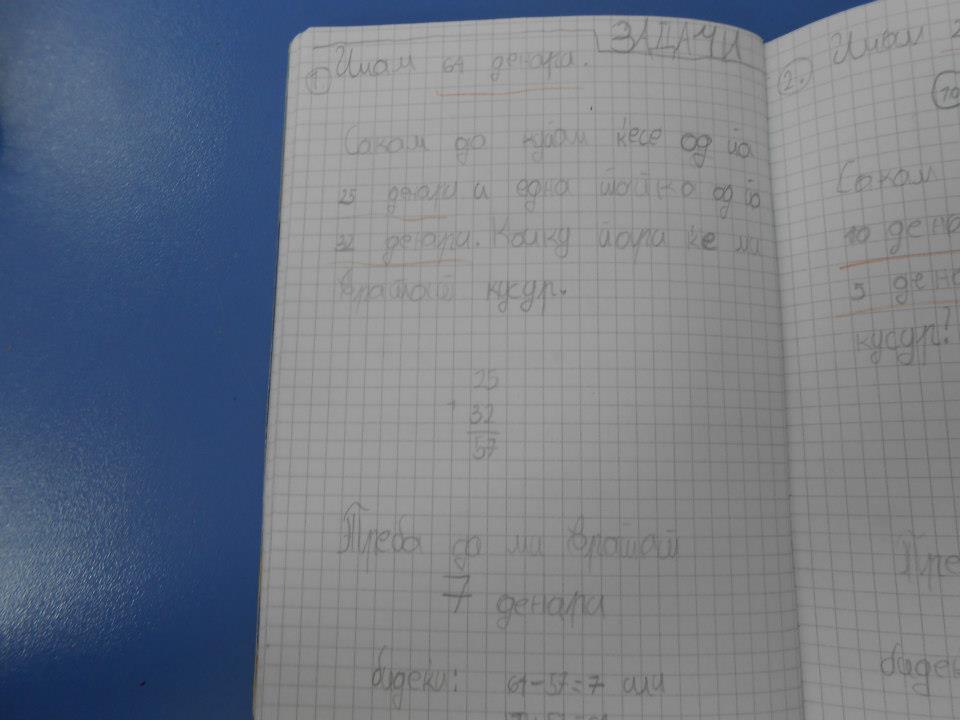 ЗАДАЧИ
1) Имам 64 денари.
Сакам да купам кесе од по
25 денари и една од по
32 денари. Колку пари ќе ми
вратат кусур.
25
+ 32
57
Треба да ми вратат
7 денари
бидеќи: 64-57=7 или
2. Имам 2
10
Сакам
10 дена
5 дена
кусур?
Тре
бидеќ